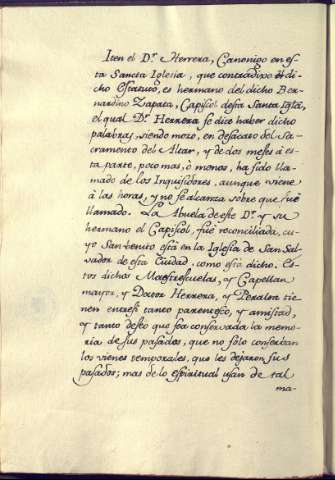 Iten el D.r Herrera, Canonigo en es-
ta Sancta Iglesia, que contradixo el di-
cho Estatuto, es hermano del dicho Ber-
nardino Zapata, Capiscol desta Santa Igl.a,
el qual D.r Herrera se dize haber dicho
palabras, siendo mozo, en desacato del Sa-
cramento del Altar, y de dos meses á es-
ta parte, poco mas, ó menos, ha sido lla-
mado de los Inquisidores, aunque viene
á las horas, y no se alcanza sobre que fué
llamado. La Abuela de este D.r y su
hermano el Capiscol, fué reconciliada, cu-
yo San-benito está en la Iglesia de San Sal-
vador de esta Ciudad, como está dicho. Es-
tos dichos Maestrescuelas, y Capellan
mayor, y Doctor Herrera, y Peralta tie-
nen entresi tanto parentesco, y amistad,
y tanto deseo que sea conservada la memo-
ria de sus pasados, que no sólo conserban
los vienes temporales, que les dejaron sus
pasados; mas de lo espiritual usan de tal
ma-